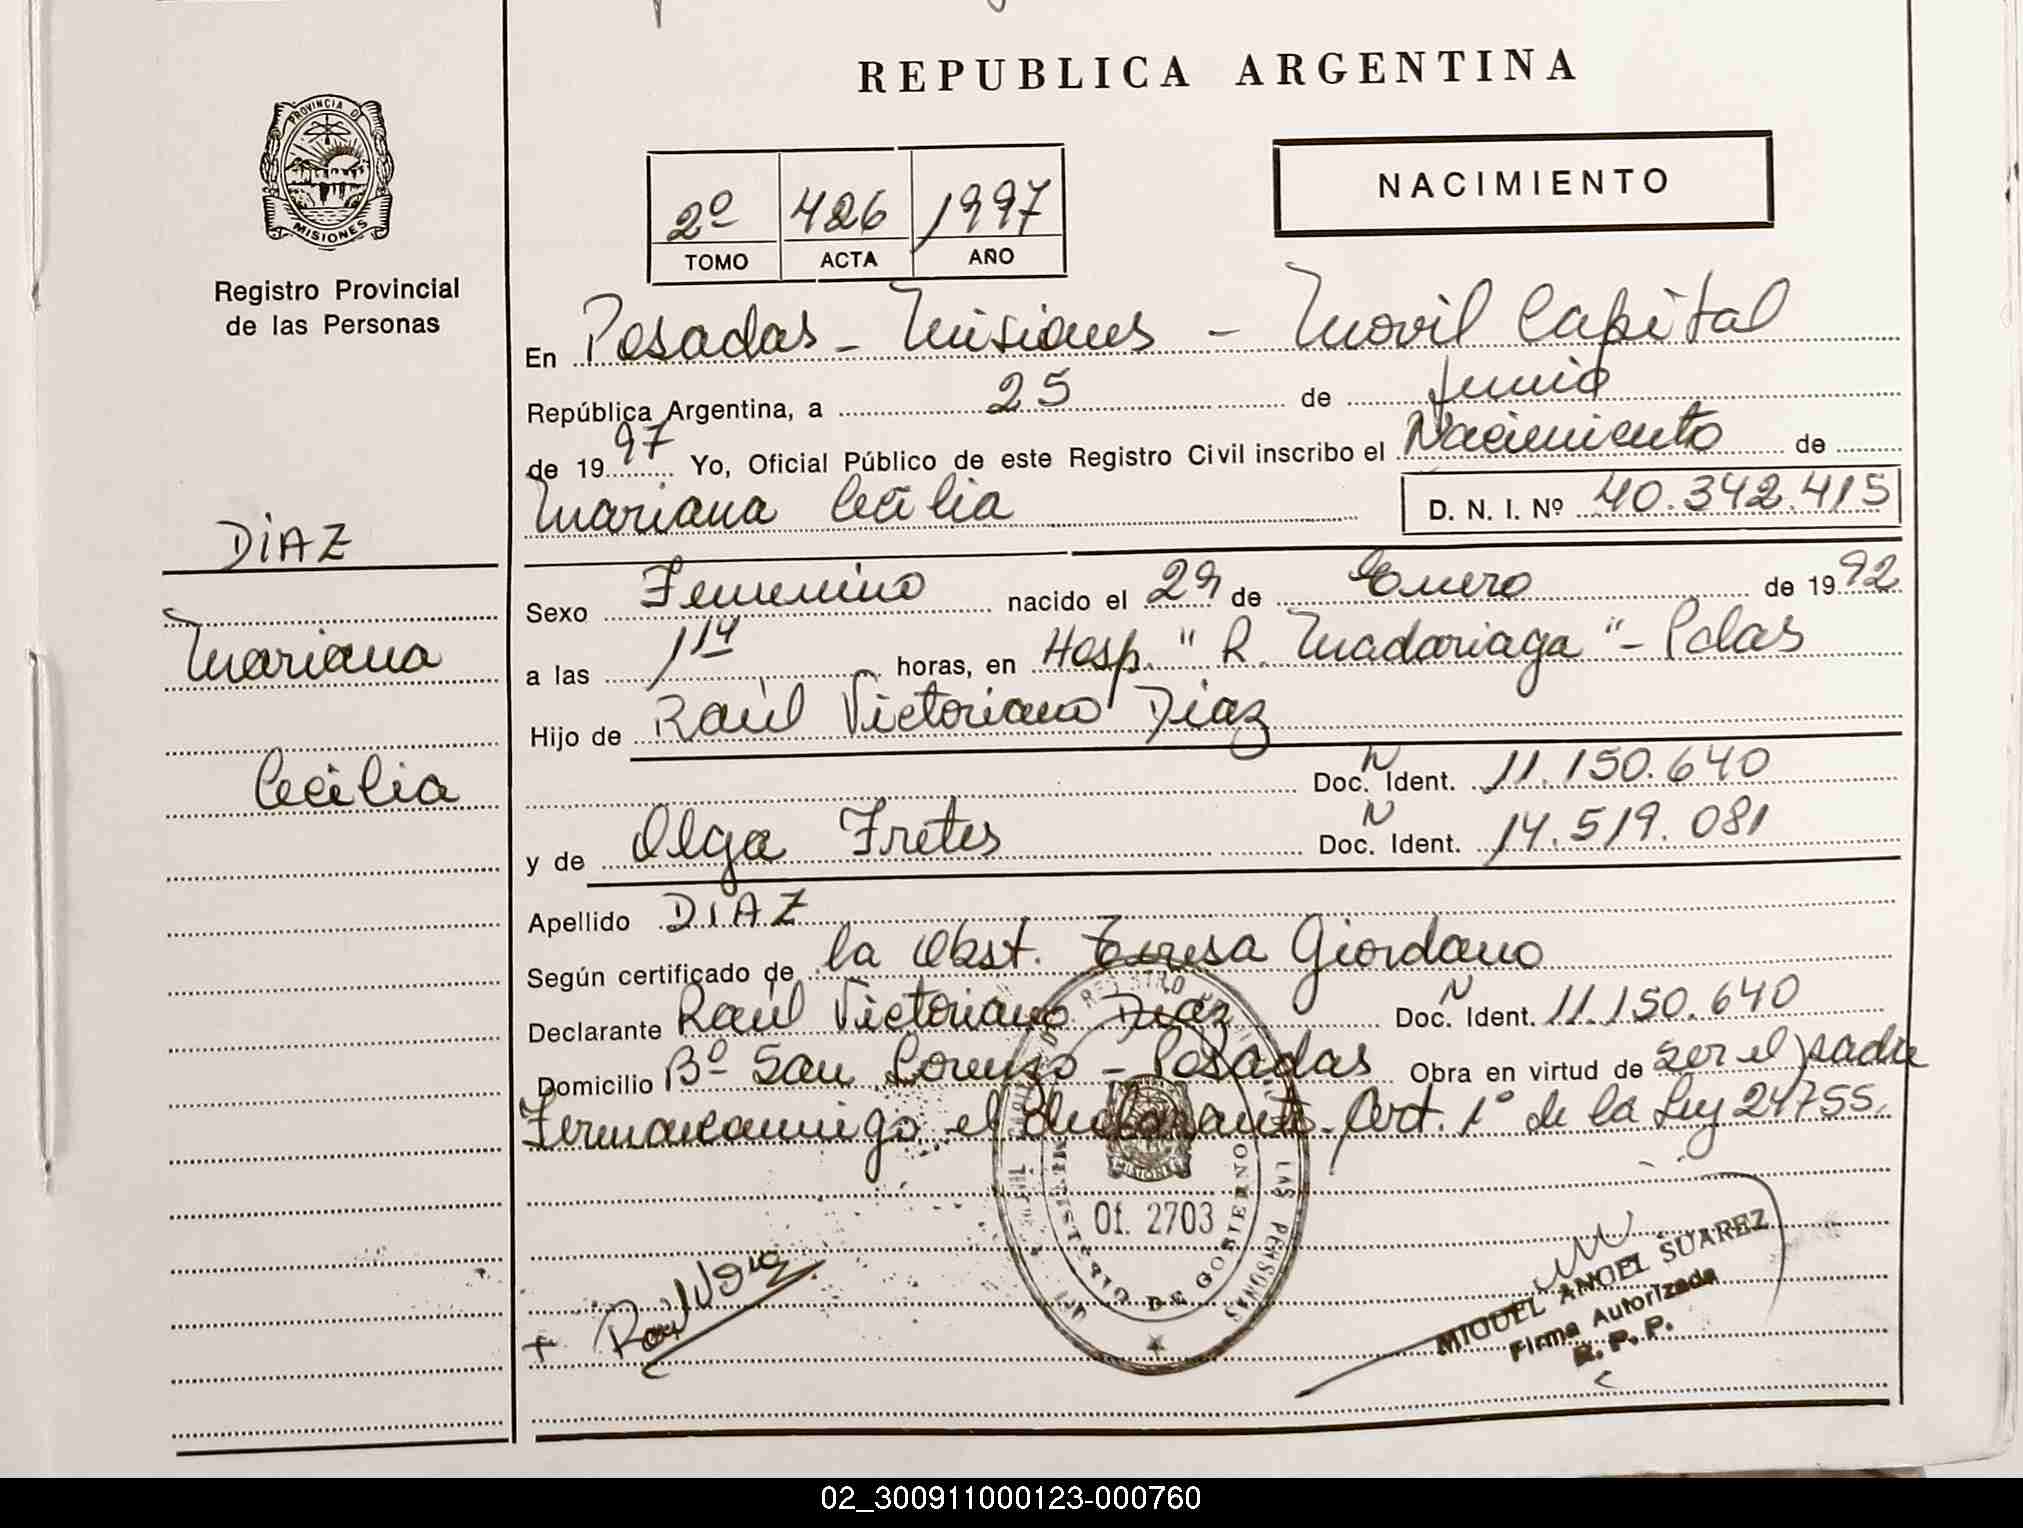 REPUBLICA ARGENTINA
PROVINCIA D
MISIONES
Registro Provincial
de las Personas
2º 426 1997
TOMO ACTA AÑO
NACIMIENTO
En Posadas - Misiones - Movil Capital
República Argentina, a 25 de Junio
de 1997 Yo, Oficial Público de este Registro Civil inscribo el Nacimiento de
Mariana Cecilia D. N. I. Nº 40.342.415
DIAZ
Mariana
Cecilia
Sexo Femenino nacido el 29 de Enero de 1992
a las horas, en Hosp. "R. Madariaga" - Pdas
Hijo de Raúl Victoriano Diaz
Doc. N Ident. 11.150.640
y de Olga Fretes Doc. N Ident. 14.519.081
Apellido DIAZ
Según certificado de la Obst. Teresa Giordano
Declarante Raúl Victoriano Diaz Doc. N Ident. 11.150.640
Domicilio Bº San Lorenzo - Posadas Obra en virtud de ser el padre
Firma conmigo el declarante. Art. 1º de la Ley 24755.
MINISTERIO DE GOBIERNO
LAS PERSONAS
MISIONES
Of. 2703
MIGUEL ANGEL SUAREZ
Firma Autorizada
R. P. P.
02_300911000123-000760